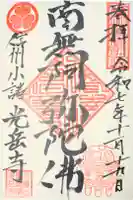 奉拝 令和七年十一月十六日
南無阿弥陀佛
信州小諸 光岳寺